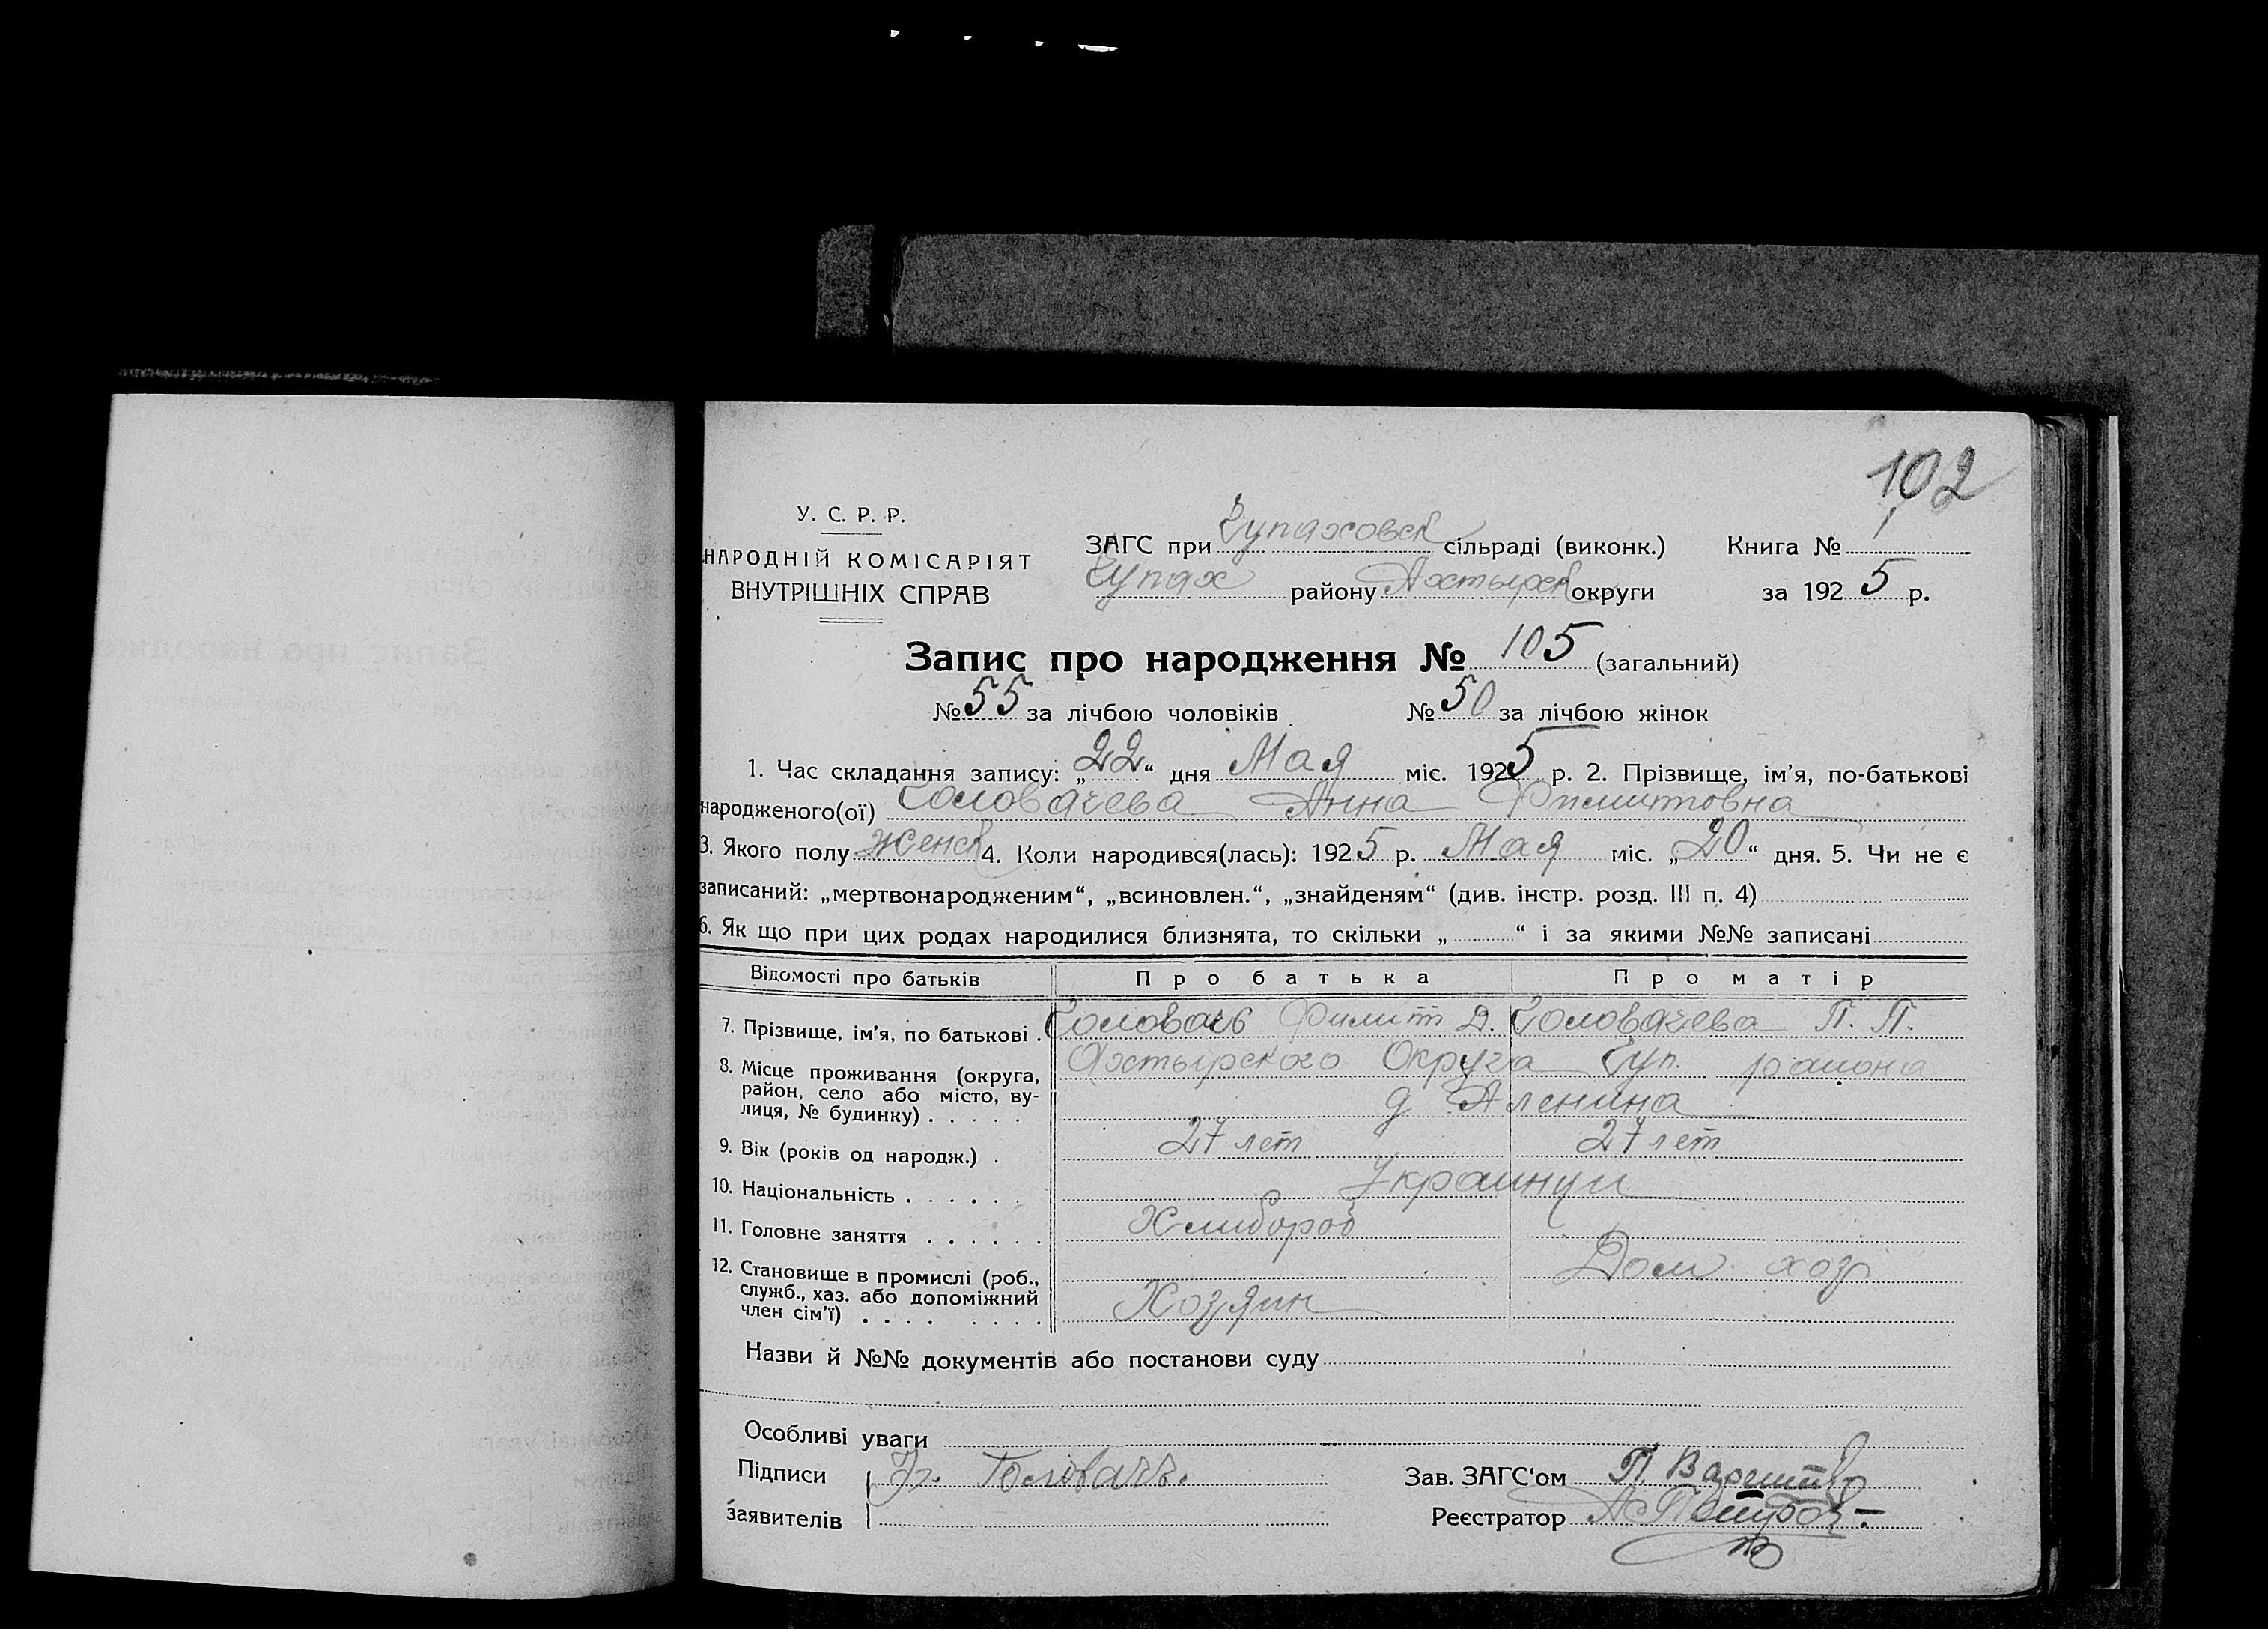 102
У. С. Р. Р.
НАРОДНІЙ КОМІСАРІЯТ
ВНУТРІШНІХ СПРАВ
ЗАГС при Чупаховск сільраді (виконк.) Книга № 1
Чупах району Ахтырск округи за 1925 р.
Запис про народження № 105 (загальний)
№ 55 за лічбою чоловіків № 50 за лічбою жінок
1. Час складання запису: „22“ дня Мая міс. 1925 р. 2. Прізвище, ім’я, по-батькові
народженого(ої) Головачева Анна Филиповна
3. Якого полу женск 4. Коли народився(лась): 1925 р. Мая міс. „20“ дня. 5. Чи не є
записаний: „мертвонародженим“, „всиновлен.“, „знайденям“ (див. інстр. розд. III п. 4)
6. Як що при цих родах народилися близнята, то скільки „ “ і за якими №№ записані
Відомості про батьків Про батька Про матір
7. Прізвище, ім’я, по батькові . Головач Филип Д. Головачева П. П.
8. Місце проживання (округа, Ахтырского Округа Чуп. района
район, село або місто, ву-
лиця, № будинку) . . . . . д Аленина
9. Вік (років од народж.) . 27 лет 27 лет
10. Національність . . . . . . Украинци
11. Головне заняття . . . . . . Хлибороб
12. Становище в промислі (роб., Дом. хоз
служб., хаз. або допоміжний
член сім’ї) . . . . . . . . Хозяин
Назви й №№ документів або постанови суду
Особливі уваги
Підписи Головачъ. Зав. ЗАГС‘ом П.
заявителів Реєстратор А Петров